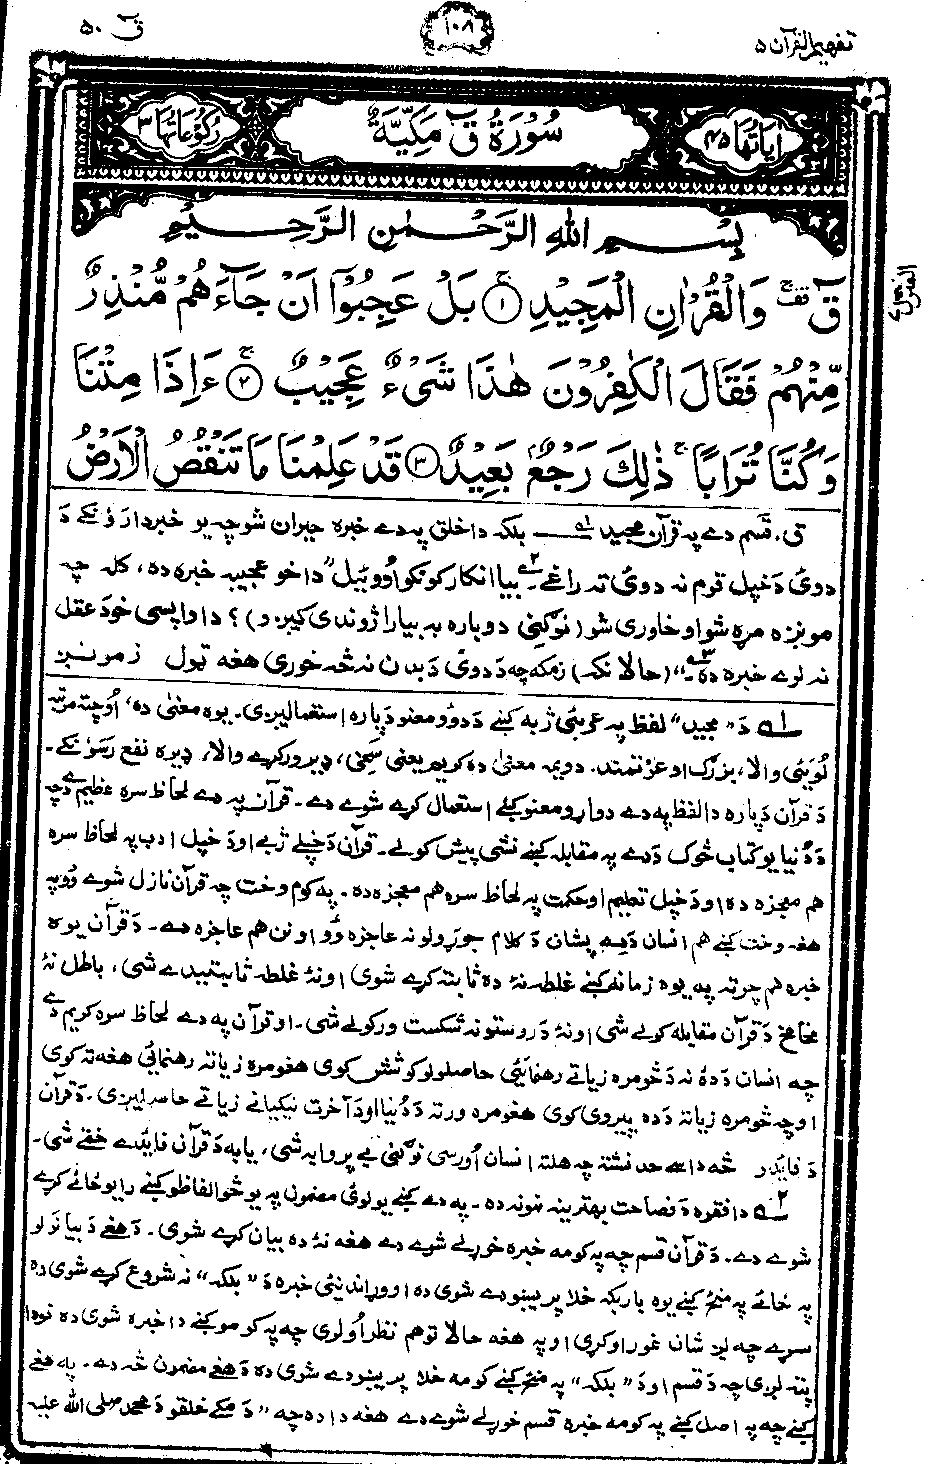 تفهيم القرآن ۵
۱۰۸
ق ۵۰
اٰيَاتُهَا ۴۵
سُوْرَةُ قٓ مَكِّيَّةٌ
رُكُوْعَاتُهَا ۳
بِسْمِ اللهِ الرَّحْمٰنِ الرَّحِيْمِ
قٓ ۚ وَالْقُرْاٰنِ الْمَجِيْدِ ۚ ۱ بَلْ عَجِبُوْٓا اَنْ جَآءَهُمْ مُّنْذِرٌ
المنزل
مِّنْهُمْ فَقَالَ الْكٰفِرُوْنَ هٰذَا شَىْءٌ عَجِيْبٌ ۚ ۲ ءَاِذَا مِتْنَا
وَكُنَّا تُرَابًا ۚ ذٰلِكَ رَجْعٌۢ بَعِيْدٌ ۳ قَدْ عَلِمْنَا مَا تَنْقُصُ الْاَرْضُ
ق. قسم دے په قرآن مجيد ۱ــه ــــ بلکه دا خلق په دے خبره حيران شو چه يو خبردارؤنکے دَ
دوئ دَخپل قوم نه دوئ ته راغے۔ ۲ــه بيا انکار کونکو اُووئيل "دا خو عجيبه خبره ده، کله چه
مونږه مړه شو او خاورې شو (نو کنې دوباره به بيا راژوندى کيږو)؟ دا واپسى خو دَ عقل
نه لرے خبره ده۔ ۳ــه" (حالانکه) زمکه چه دَ دوئ دَ بدن نه څه خورى هغه ټول زمونږ
۱ــه دَ "مجيد" لفظ په عربئ ژبه کښے دَ دوو معنو دَپاره استعماليږى۔ يوه معنىٰ ده، اُوچته مرتبه
لوئيئ والا، بزرګ او عزتمند. دويمه معنىٰ ده کريم يعنى سخى، ډير ورکړے والا، ډيره نفع رسؤنکے۔
دَ قرآن دَپاره دا لفظ په دے دواړو معنو کښے استعمال کړے شوے دے۔ قرآن په دے لحاظ سره عظيم دے چه
دَ دُنيا يو کتاب څوک دَدے په مقابله کښے نشى پيش کولے۔ قرآن دَخپلے ژبے او دَ خپل ادب په لحاظ سره
هم معجزه ده او دَ خپل تعليم او حکمت په لحاظ سره هم معجزه ده۔ په کوم وخت چه قرآن نازل شوے وُو په
هغه وخت کښے هم انسان دَدے پشان دَ کلام جوړولو نه عاجزه وُو او نن هم عاجزه دے۔ دَ قرآن يوه
خبره هم چرته په يوه زمانه کښے غلطه نۀ ده ثابته کړے شوى او نۀ غلطه ثابتيدے شى، باطل نۀ
مخامخ دَ قرآن مقابله کولے شى او نۀ دَ روستو نه شکست ورکولے شى۔ او قرآن په دے لحاظ سره کريم دے
چه انسان دَدۀ نه دَ څومره زياتے رهنمائئ حاصلولو کوشش کوى هغومره زياته رهنمائى هغه ته کوى
او چه څومره زياته دَ ده پيروى کوى هغومره ورته دَ دُنيا او دَ آخرت نيکيانے زياتے حاصليږى۔ دَ قرآن
دَ فايدو څه داسے حد نشته چه هلته انسان اُورسى نو کنى بے پروا به شى، يا به دَ قرآن فايدے ختمے شى۔
۲ــه دا فقره دَ فصاحت بهترينه نمونه ده۔ په دے کښے يو لوئ مضمون په يو څو الفاظو کښے رايوځائے کړے
شوے دے۔ دَ قرآن قسم چه په کومه خبره خوړلے شوے دے هغه نۀ ده بيان کړے شوى۔ دَ هغے دَ بيانولو
په ځائے په منځ کښے يوه باريکه خلا پريښودے شوى ده او وړاندينئ خبره دَ "بلکه" نه شروع کړے شوى ده
سړے چه لږ شان غور اوکړى او په هغه حالاتو هم نظر اُولرى چه په کومو کښے دا خبره شوى ده نو دا
پته لږى چه دَ قسم او دَ "بلکه" په منځ کښے کومه خلا پريښودے شوى ده دَ هغے مضمون څه دے۔ په هغے
کښے چه په اصل کښے په کومه خبره قسم خوړلے شوے دے هغه دا ده چه "دَ مکے خلقو دَ محمد صلى الله عليه